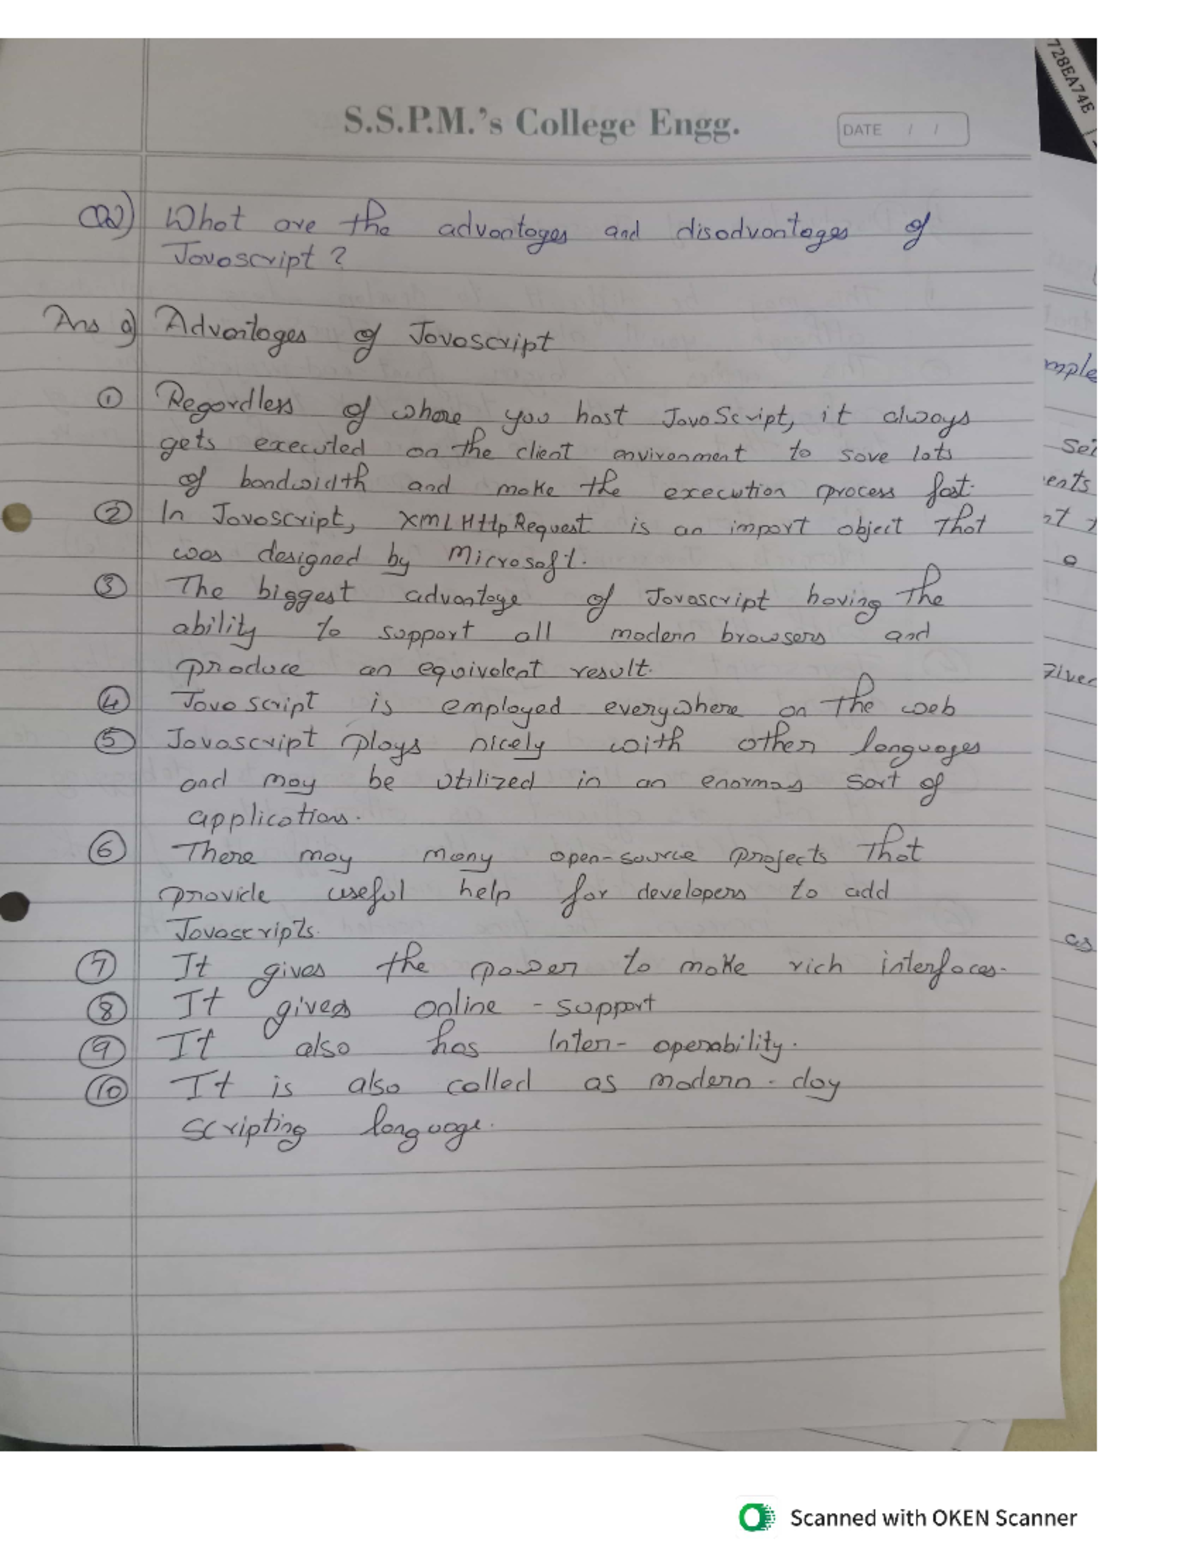 728EA74E
S.S.P.M.'s College Engg.
DATE / /
Q2) What are the advantages and disadvantages of
Javascript ?
Ans a) Advantages of Javascript
① Regardless of where you host JavaScript, it always
gets executed on the client environment to save lots
of bandwidth and make the execution process fast.
② In Javascript, XMLHttpRequest is an import object That
was designed by Microsoft.
③ The biggest advantage of Javascript having The
ability to support all modern browsers and
produce an equivalent result.
④ JavaScript is employed everywhere on The web
⑤ Javascript plays nicely with other languages
and may be utilized in an enormas sort of
applications.
⑥ There may many open-source projects That
provide useful help for developers to add
Javascripts.
⑦ It gives the power to make rich interfaces.
⑧ It gives online - support
⑨ It also has Inter- operability.
⑩ It is also called as modern - day
scripting language.
mple
ents
as
Scanned with OKEN Scanner